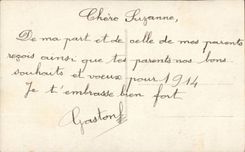 Chère Suzanne,
De ma part et de celle de mes parents
reçois ainsi que tes parents nos bons
souhaits et voeux pour 1914
Je t'embrasse bien fort
Gaston